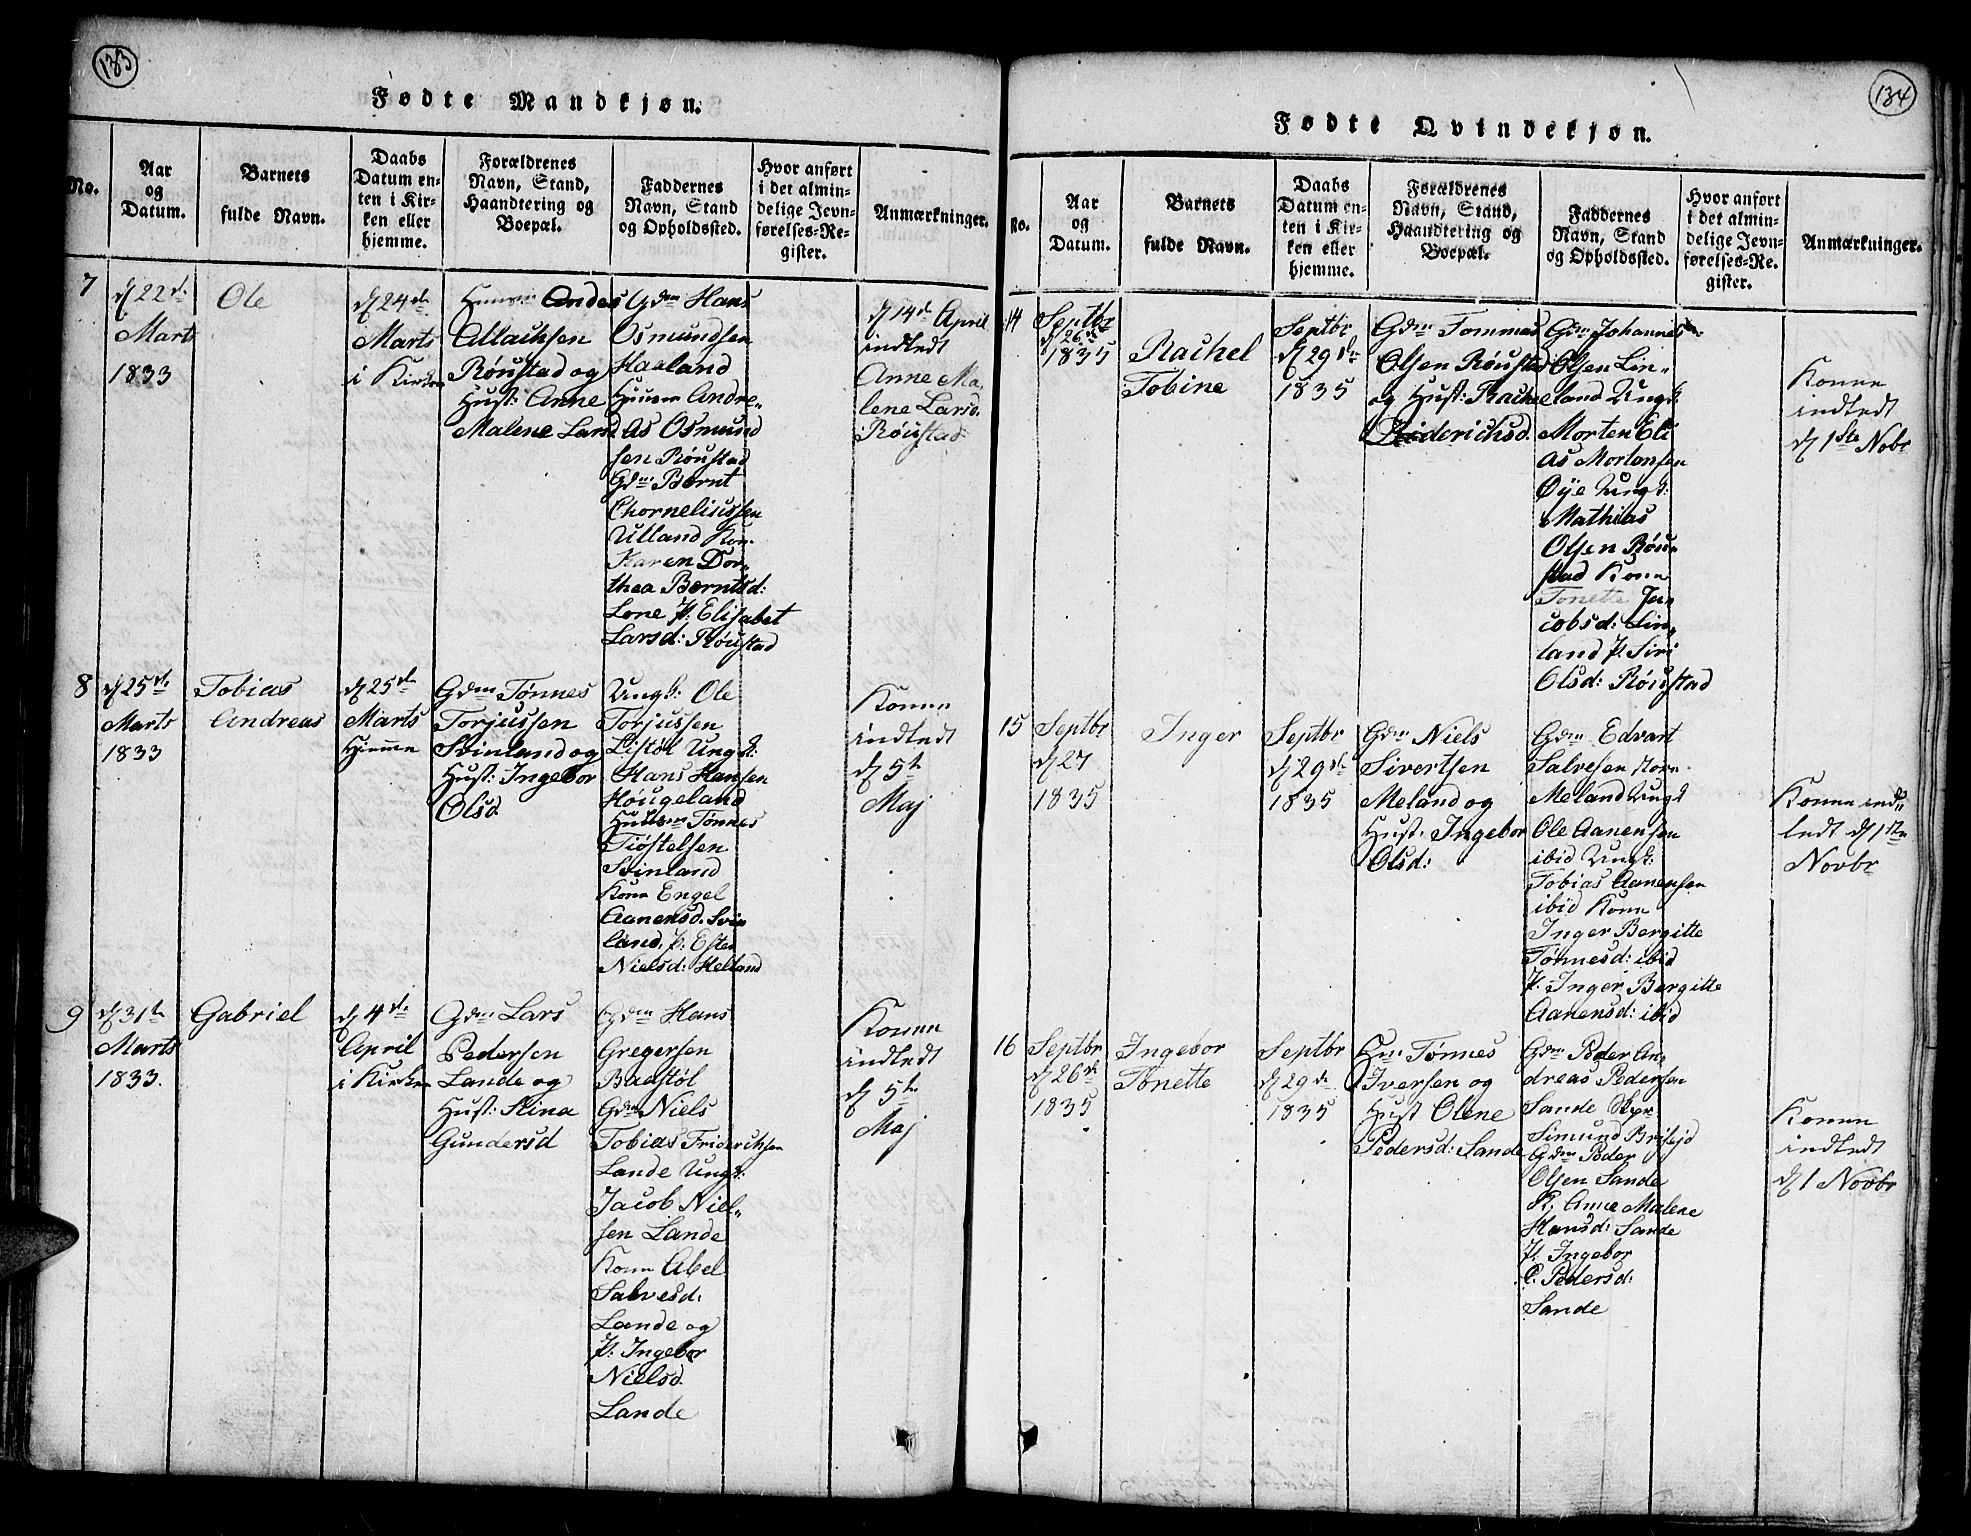 133
Fødte Mandkjøn.
No.
Aar
og
Datum.
Barnets
fulde Navn.
Daabs
Datum en-
ten i Kir-
ken eller
hjemme.
Forældrenes
Navn, Stand,
Haandtering og
Boepæl.
Faddernes
Navn, Stand
og Opholdssted.
Hvor anført
i det almin-
delige Jevn-
førelses-Re-
gister.
Anmærkninger.
7
d 22de
Marts
1833
Ole
d 24de
Marts
i Kirken
Andes
Attachsen
Røustad og
Hust: Anne
Malene Larsd
Gdm Hans
Osmundsen
Haaland
Huusm Andre„
As Osmund
sen Røustad
Gdm Bernt
Chorneliussen
Ulland Kon
Karen Dor„
thea Berntsd:
Lone P: Elisabet
Larsd: Røustad
d 14de April
indledt
Anne Ma„
lene Larsd.
Røustad
8
d 25de
Marts
1833
Tobias
Andreas
d 25de
Marts
Hiemme
Gdm Tønnes
Torjussen
Svinland og
Hust: Ingebor
Olsd.
Ungk: Ole
Torjussen
Listøl Ungk:
Hans Hansen
Høugeland
Huusm Tønnes
Tiøstelsen
Svinland
Kone Engel
Aanensd. Svin
land, P: Ester
Nielsd: Helland
Konen
indledt
d 5te
Maj
9
d 31te
Marts
1833.
Gabriel
d 4de
April
i Kirken
Gdm Lars
Pedersen
Lande og
Hust: Stina
Gundersd
Gdm Hans
Gregersen
Badstøl
Gdm Niels
Tobias Friderichsen
Lande Ungk:
Jacob Niel„
sen Lande
Kone Abel
Salvesd:
Lande og
P: Ingebor
Nielsd.
Lande
Konen
indledt
d 5te
Maj
134
Fødte Qvindekjøn.
No.
Aar
og
Datum.
Barnets
fulde Navn.
Daabs
Datum en-
ten i Kir-
ken eller
hjemme.
Forældrenes
Navn, Stand,
Haandtering og
Boepæl.
Faddernes
Navn, Stand
og Opholdssted.
Hvor anført
i det almin-
delige Jevn-
førelses-Re-
gister.
Anmærkninger.
14
Septbr
d 26de
1835
Rachel
Tobine
Septbr
d 29de
1835
Gdm Tommas
Olsen Røustad
og Hust: Rachel
Diderichsd.
Gdm Johannes
Olsen Lin„
land Ungk
Morten Eli
As Mortensen
Øye Ungk:
Mathias
Olsen Røu„
stad Kone
Tonette Ja„
cobsd: Lin„
land P. Siri
Olsd: Røustad
Konen
indledt
d 1ste Nobr
15
Septbr
d 27
1835
Inger
Septbr
d 29de
1835
Gdm Niels
Sivertsen
Meland og
Hust: Ingebor
Olsd:
Gdm Edvart
Salvesen
Meland Ungk
Ole Aanensen
ibid Ungk:
Tobias Aanensen
ibid Kone
Inger Bergitte
Tønnesd: ibid
P. Inger Bergitte
Aanensd: ibid
Konen ind„
ledt d 1ste
Novbr
16
Septbr
d 26de
1835
Ingebor
Tonette
Septbr
d 29de
1835
Hm Tønnes
Iversen og
Hust Olene
Pedersd: Sande
Gdm Peder An„
dreas Pedersen
Sande
Simund
Gdm Peder
Olsen Sande
K. Anne Malene
Hansd: Sande
P: Ingebor
Pedersd:
Sande
Konen
indledt
d 1 Novbr